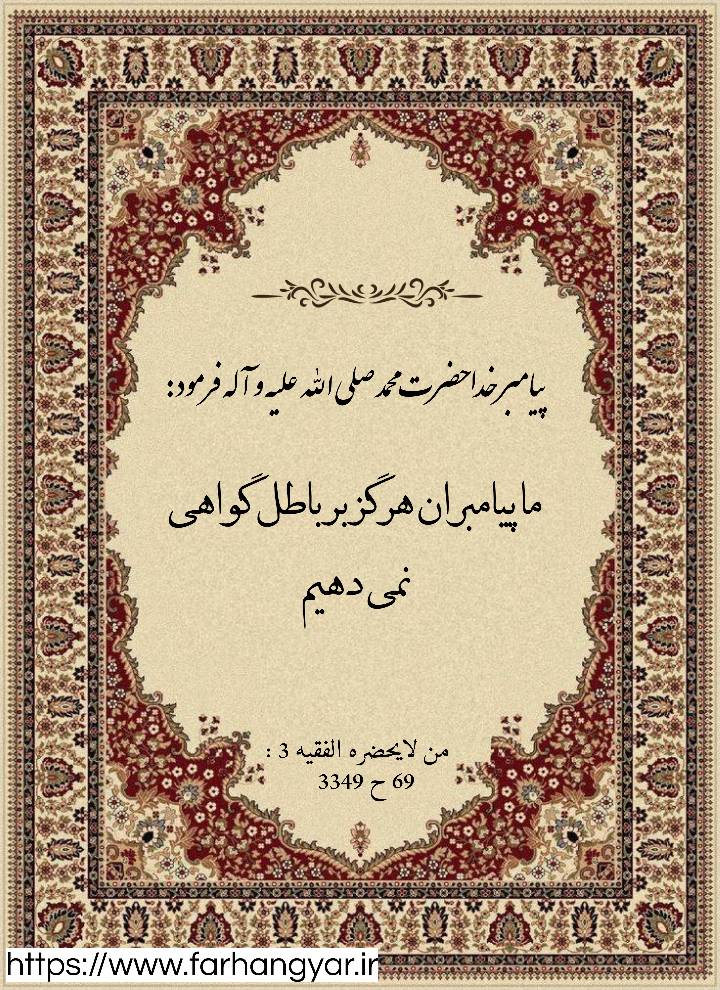 پیامبر خدا حضرت محمد صلی الله علیه و آله فرمود:
ما پیامبران هرگز بر باطل گواهی
نمی دهیم
من لایحضره الفقیه 3 :
69 ح 3349
https://www.farhangyar.ir